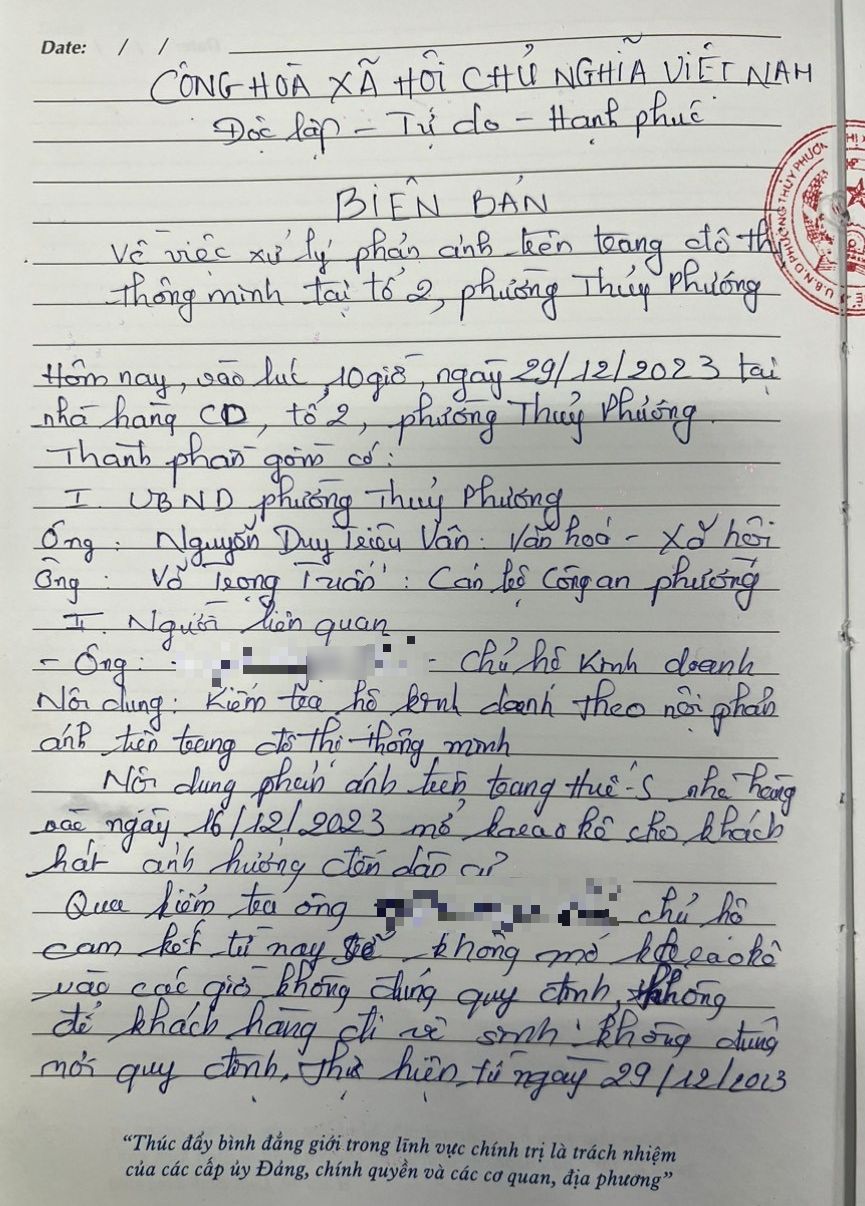 Date: / /
CỘNG HOÀ XÃ HỘI CHỦ NGHĨA VIỆT NAM
Độc lập - Tự do - Hạnh phúc
BIÊN BẢN
Về việc xử lý phản ánh trên trang đô thị
thông minh tại tổ 2, phường Thủy Phương
Hôm nay, vào lúc 10 giờ, ngày 29/12/2023 tại
nhà hàng CD, tổ 2, phường Thuỷ Phương.
Thành phần gồm có:
I. UBND phường Thuỷ Phương
Ông: Nguyễn Duy Triều Vân: Văn hoá - Xã hội
Ông: Võ Trọng Tuấn: Cán bộ Công an phường
II. Người liên quan
- Ông: - Chủ hộ kinh doanh
Nội dung: Kiểm tra hộ kinh doanh theo nội phản
ánh trên trang đô thị thông minh
Nội dung phản ánh trên trang Huế-S nhà hàng
vào ngày 16/12/2023 mở karaokê cho khách
hát ảnh hưởng đến dân cư
Qua kiểm tra ông chủ hộ
cam kết từ nay về không mở karaokê
vào các giờ không đúng quy định, không
để khách hàng đi vệ sinh không đúng
nơi quy định, thực hiện từ ngày 29/12/2023
U.B.N.D PHƯỜNG THỦY PHƯƠNG
"Thúc đẩy bình đẳng giới trong lĩnh vực chính trị là trách nhiệm
của các cấp ủy Đảng, chính quyền và các cơ quan, địa phương"